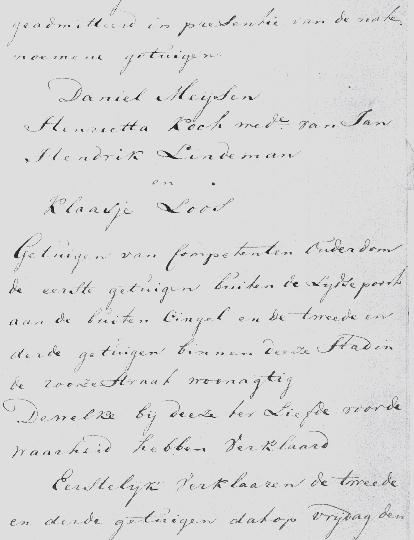 geadmitteerd in presentie van de nate
noemene getuigen
Daniel Meysen
Henrietta Koch wede. van Jan
Hendrik Lindeman
en
Klaasje Loos
Getuigen van Competenten Ouderdom
de eerste getuigen buiten de Lydsepoort
aan de buiten Cingel en de tweede en
derde getuigen binnen deeze Stad in
de rooze Straat woonagtig
Dewelke bij deeze ter Liefde voor de
waarheid hebben Verklaard
Eerstelyk Verklaaren de tweede
en derde getuigen dat op vrydag den